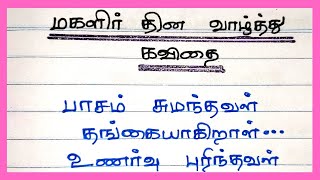 மகளிர் தின வாழ்த்து
கவிதை
பாசம் சுமந்தவள்
தங்கையாகிறாள்...
உணர்வு புரிந்தவள்